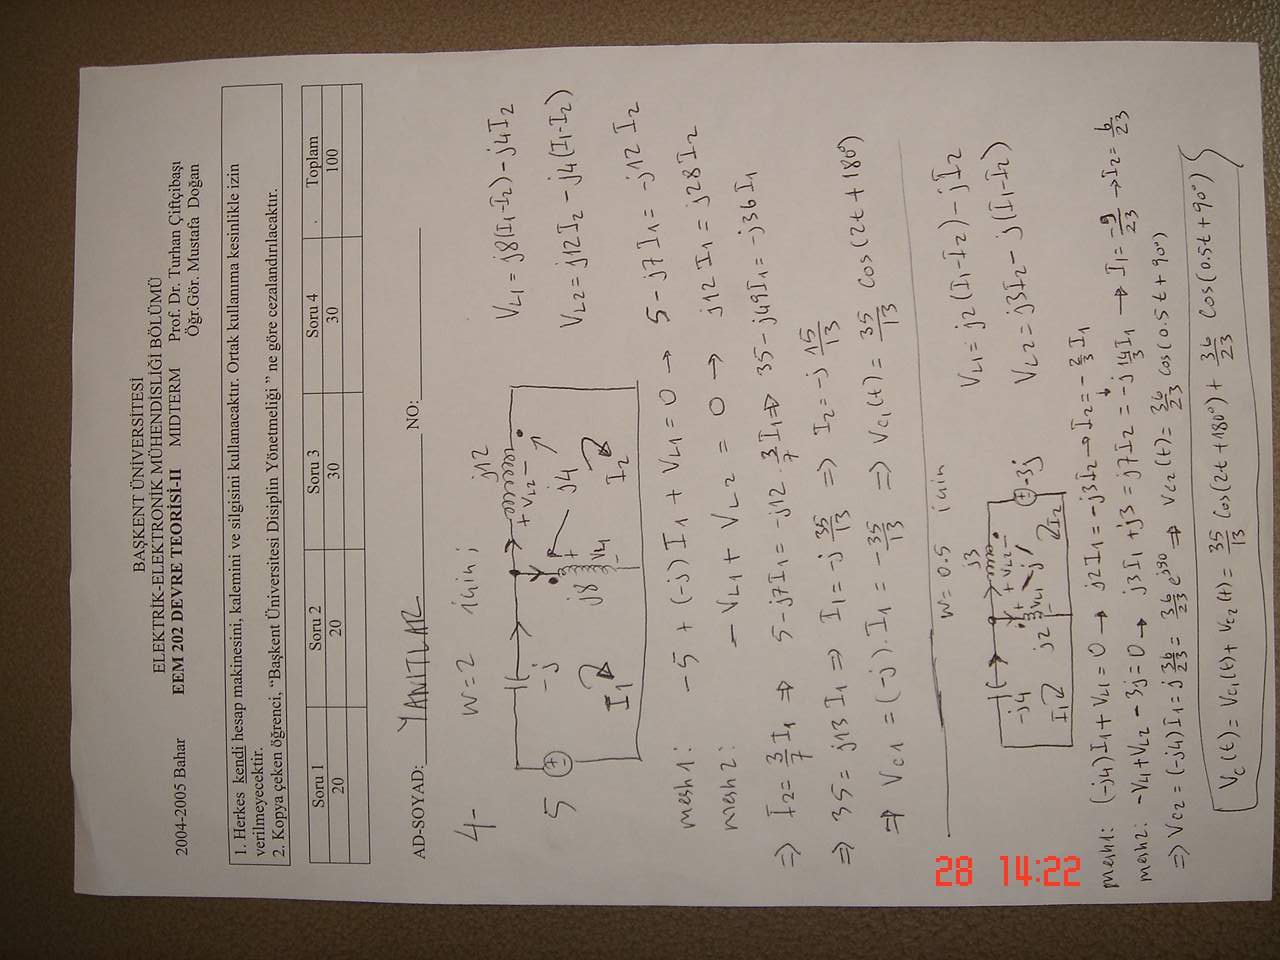 BAŞKENT ÜNİVERSİTESİ
ELEKTRİK-ELEKTRONİK MÜHENDİSLİĞİ BÖLÜMÜ
2004-2005 Bahar EEM 202 DEVRE TEORİSİ-II MIDTERM Prof. Dr. Turhan Çiftçibaşı
Öğr.Gör. Mustafa Doğan
1. Herkes kendi hesap makinesini, kalemini ve silgisini kullanacaktır. Ortak kullanıma kesinlikle izin
verilmeyecektir.
2. Kopya çeken öğrenci, “Başkent Üniversitesi Disiplin Yönetmeliği” ne göre cezalandırılacaktır.
Soru 1 Soru 2 Soru 3 Soru 4 . Toplam
20 20 30 30 100
AD-SOYAD: YANITLAR NO:
4- w=2 için; j12
+ VL2 -
-j
5
±
j8
+ VL1 -
j4
I1
I2
VL1 = j8(I1-I2) - j4I2
VL2 = j12I2 - j4(I1-I2)
mesh1: -5 + (-j)I1 + VL1 = 0 → 5 - j7I1 = -j12I2
mesh2: -VL1 + VL2 = 0 → j12I1 = j28I2
⇒ I2 = 3/7 I1 ⇒ 5 - j7I1 = -j12 · 3/7 I1 ⇒ 35 - j49I1 = -j36I1
⇒ 35 = j13I1 ⇒ I1 = -j 35/13 ⇒ I2 = -j 15/13
⇒ VC1 = (-j)·I1 = -35/13 ⇒ VC1(t) = 35/13 cos(2t + 180°)
w=0.5 için
j3
+ VL2 -
-j4
j2
+ VL1 -
j
I1
I2
± -3j
VL1 = j2(I1-I2) - jI2
VL2 = j3I2 - j(I1-I2)
mesh1: (-j4)I1 + VL1 = 0 → j2I1 = -j3I2 → I2 = -2/3 I1
mesh2: -VL1 + VL2 - 3j = 0 → j3I1 + j3 = j7I2 = -j 14/3 I1 → I1 = -9/23 → I2 = 6/23
⇒ VC2 = (-j4)I1 = j 36/23 = 36/23 e^j90 ⇒ VC2(t) = 36/23 cos(0.5t + 90°)
VC(t) = VC1(t) + VC2(t) = 35/13 cos(2t + 180°) + 36/23 cos(0.5t + 90°)
28 14:22